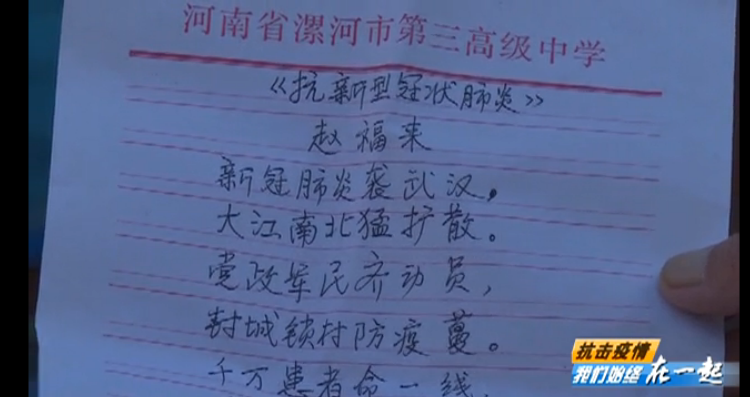 河南省漯河市第三高级中学
《抗新型冠状肺炎》
赵福来
新冠肺炎袭武汉，
大江南北猛扩散。
党政军民齐动员，
封城锁村防疫蔓。
千万患者命一线，
抗击疫情
我们始终在一起